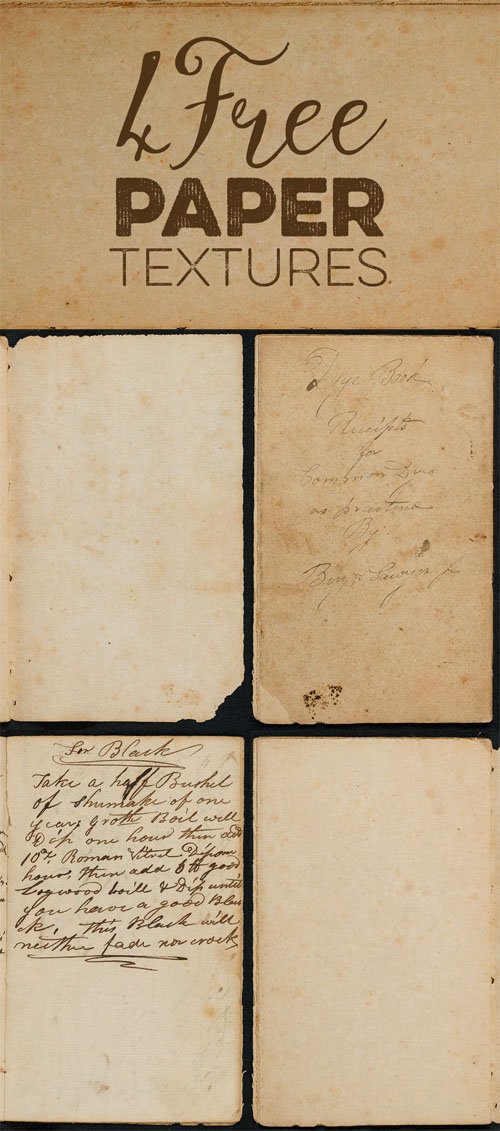 4 Free
PAPER
TEXTURES
Dye Book
Receipts
for
Common Dyes
as practised
By
Benj Sawyer Jr
For Black
Take a half Bushel
of Shumake of one
years groth Boil will
Dip one hour then add
10oz Roman Vitrol Dip one
hour, then add 6 lb good
Logwood boill & Dip until
you have a good Blac
ck, this Black will
neither fade nor crock